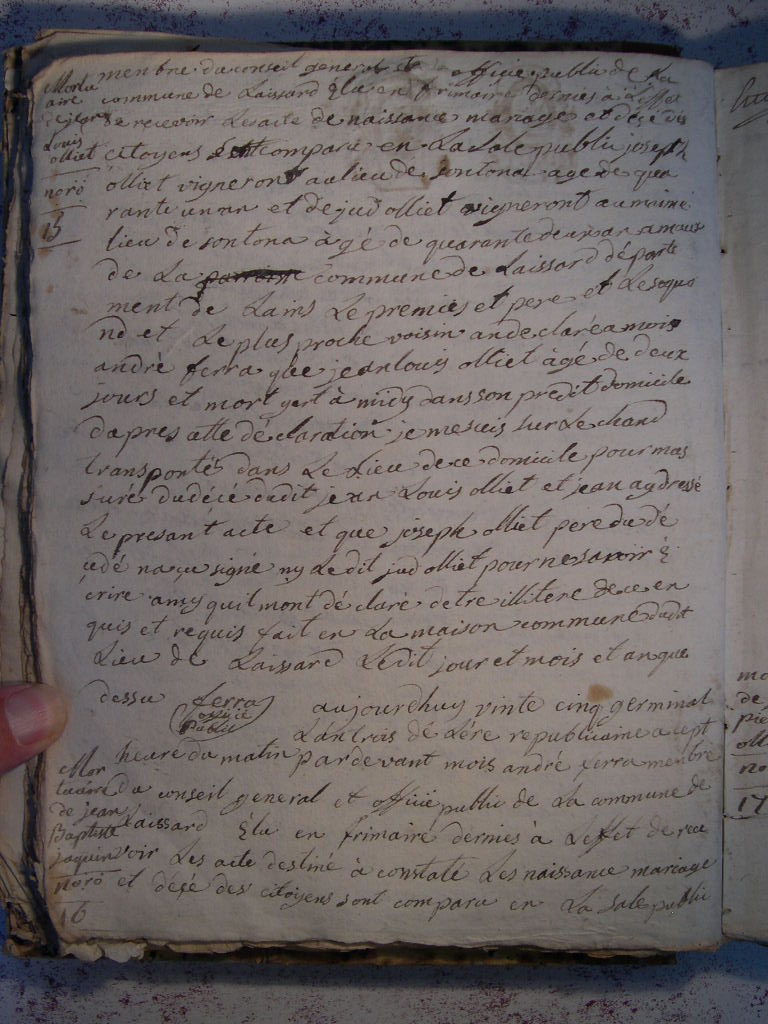 Mortu
aire
de jean
Louis
olliet
noro
15
menbre du conseil general et officié public de La
commune de Laissard Elu en frimaire dernies à L'effet
de recevoir Les acte de naissance mariage et décé des
citoyens sont comparu en La sale public joseph
olliet vigneront au lieu de sontona agé de qua
rante un an et de jud olliet vigneront au maime
lieu de sontona à gé de quarante deux an
de La paroisse commune de Laissard départe
ment de Lains Le premies et pere et Le sego
nd et Le plus proche voisin an declaré a mois
andré ferra que jean louis olliet àgé de deux
jours et mort yert à midy dans son predit domicile
dapres cette dé claration je me suis sur Le chand
transportés dans Le Lieu de ce domicile pour mas
suré du décé dudit jean Louis olliet et jean ay dressé
Le presant acte et que joseph olliet pere du dé
cédé na çu signé ny Le dit jud olliet pour ne savoir é
crire amy quil mont dé claré detre illitere de ce en
quis et requis fait en La maison commune dudit
Lieu de Laissard Ledit jour et mois et an que
dessu ferra
officié
public
Mor
tuaire
de jean
Baptiste
jaquin
noro
16
aujourdhuy vinte cinq germinal
Lan trois de Lére republicaine a sept
heure du matin par devant mois andré ferra menbre
du conseil general et officié public de La commune de
Laissard Elu en frimaire dernies à Leffet de rece
voir Les acte destiné à constaté Les naissance mariage
et décé des citoyens sont comparu en La sale public
mo
de
pie
oll
no
17